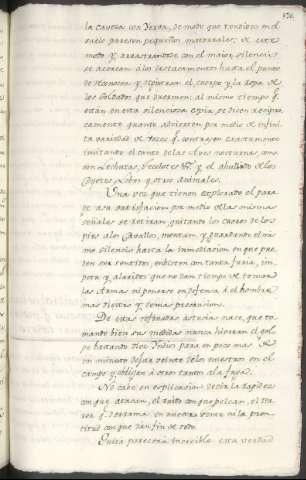 la caveza con Yerva, de modo que tendidos en el
suelo parecen pequeños matorrales; de este
modo y arrastrandose con el maior silencio
se acercan a los destacamentos hasta el punto
de reconocer y registrar el cuerpo y la ropa de
los soldados que duermen: al mismo tiempo q.e
estan en esta silenciosa espia se dicen recipro-
camente quanto advierten por medio de infini-
ta variedad de voces q.e contraen exactamente
imitando el canto de las Aves nocturnas como
son Lechuzas, Tecolotes &.a y el ahullido de los
Coyotes Lobos y otros animales.
Una vez que tienen explorado el para-
ge a su satisfaccion por medio de las mismas
señales se retiran, quitando los cueros de los
pies a los Cavallos, montan, y guardando el mis-
mo silencio hasta la inmediacion en que pue-
den ser sentidos, embisten con tanta furia, im-
petu, y alaridos que no dan tiempo de tomar
las Armas ni ponerse en defensa á el hombre
mas diestro y demas precaucion.
De estas refinadas astucias nace, que to-
mando bien sus medidas nunca hierran el gol-
pe bastando diez Indios para en poco mas de
un minuto dejar veinte de los nuestros en el
campo y obligen á otros tantos a la fuga.
No cabe en explicacion decir la rapidez
con que atacan, el ruido con que pelean, el ter-
ror q.e derraman en nuestra gente ni la pron-
titud con que dan fin de todo.
Quiza parecerá increible esta verdad